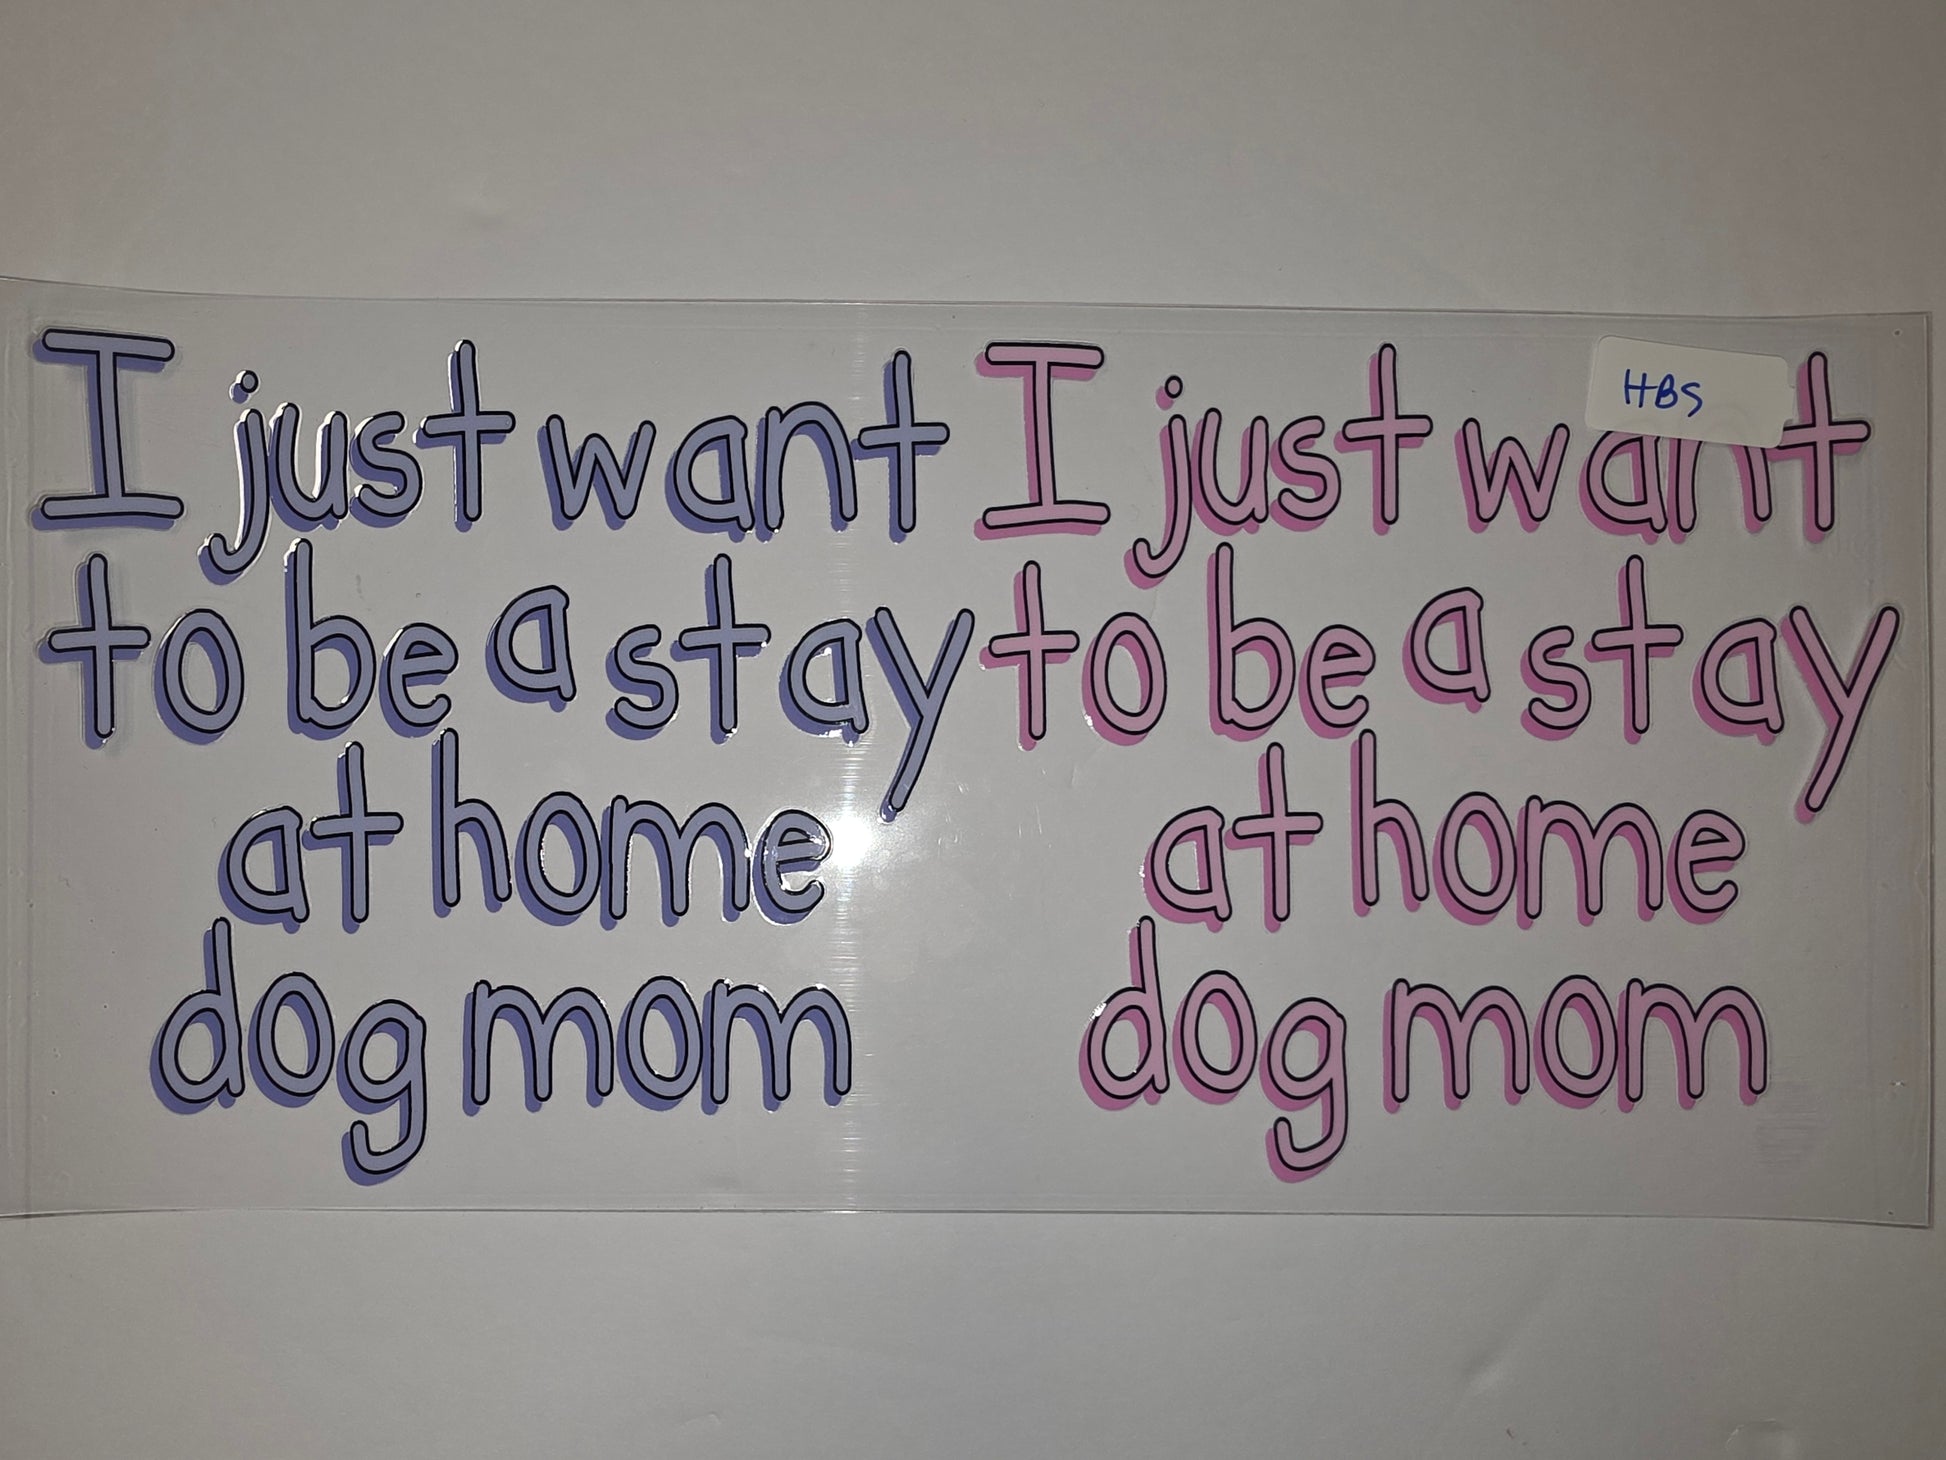 I just want
to be a stay
at home
dog mom
I just want
to be a stay
at home
dog mom
HBS